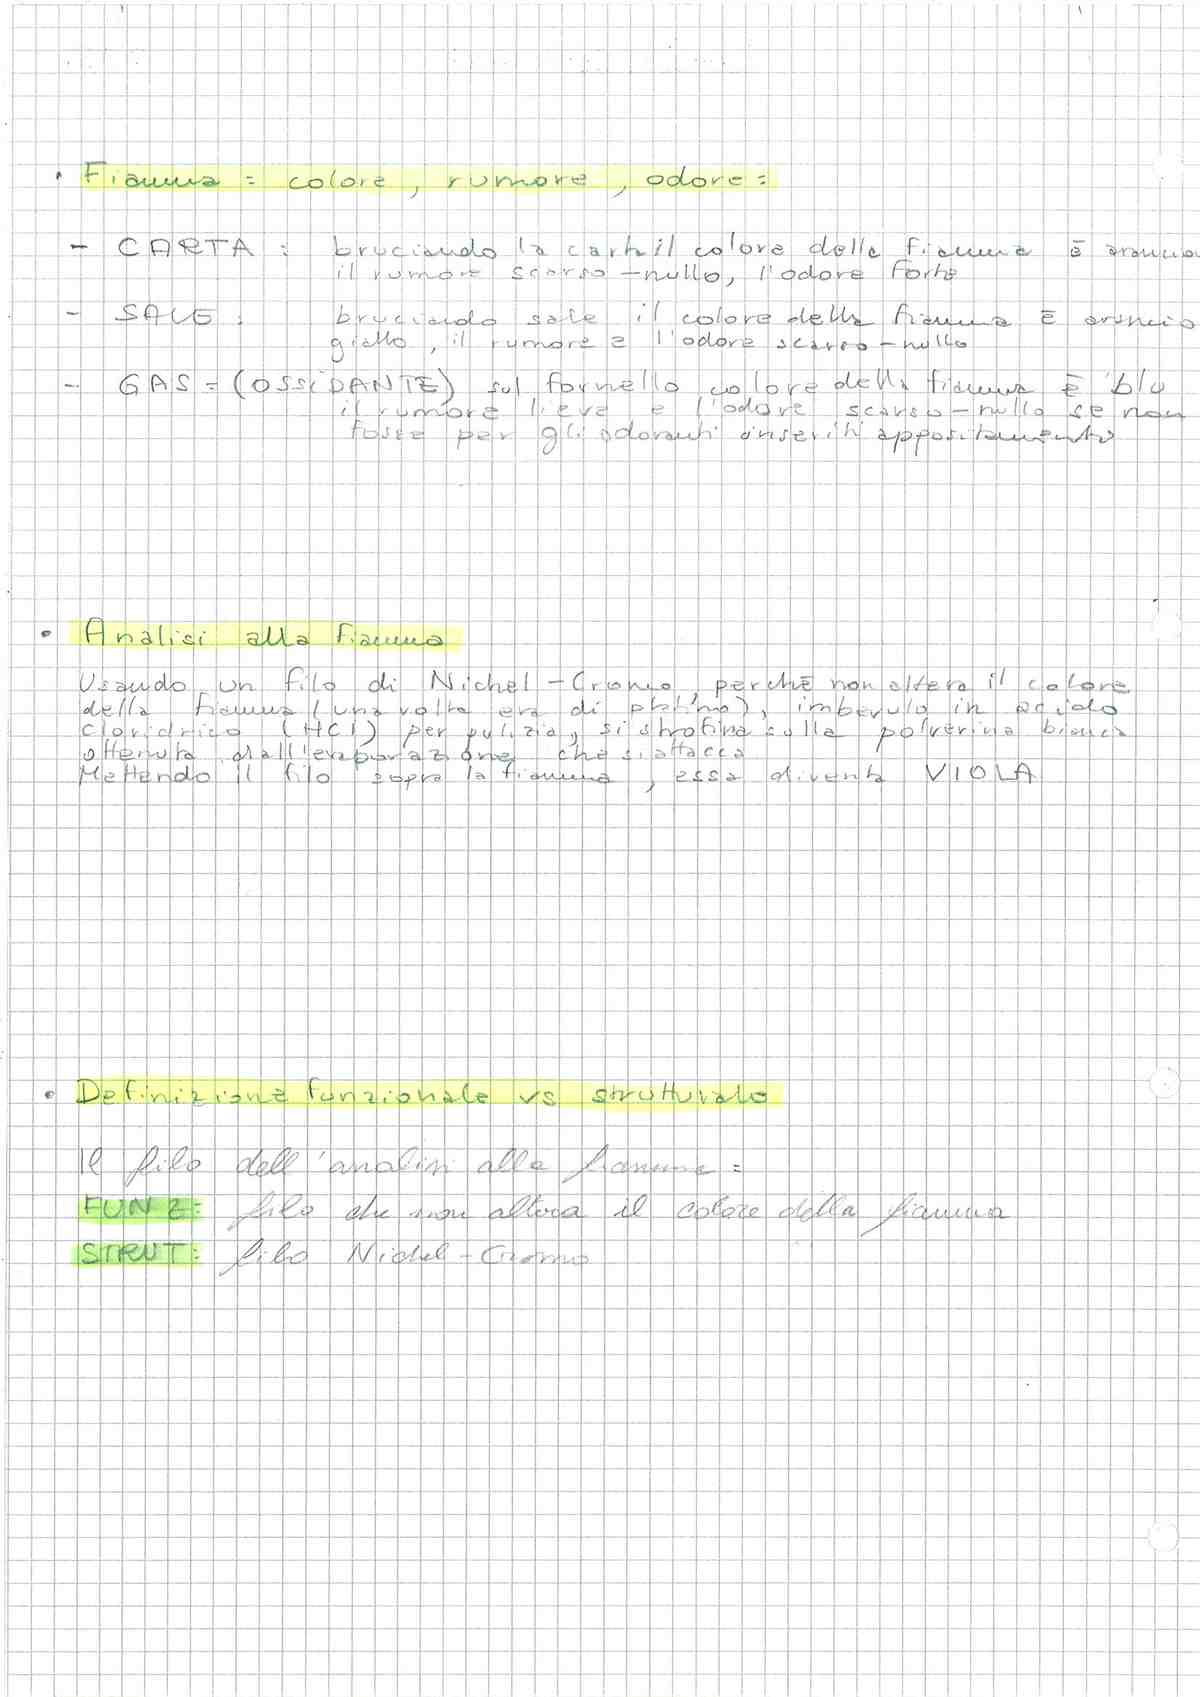 • Fiamma = colore, rumore, odore:
- CARTA : bruciando la carta il colore della fiamma è arancio
il rumore scarso-nullo, l'odore forte
- SALE : bruciando sale il colore della fiamma è arancio
giallo, il rumore e l'odore scarso-nullo
- GAS = (OSSIDANTE) sul fornello colore della fiamma è blu
il rumore lieve e l'odore scarso-nullo se non
fosse per gli odoranti inseriti appositamente
• Analisi alla fiamma
Usando un filo di Nichel-Cromo, perchè non altera il colore
della fiamma (una volta era di platino), imbevuto in acido
cloridrico (HCl) per pulizia, si strofina sulla polverina bianca
ottenuta dall'evaporazione che si attacca
Mettendo il filo sopra la fiamma, essa diventa VIOLA
• Definizione funzionale vs strutturale
Il filo dell'analisi alla fiamma =
FUNZ: filo che non altera il colore della fiamma
STRUT: filo Nichel-Cromo